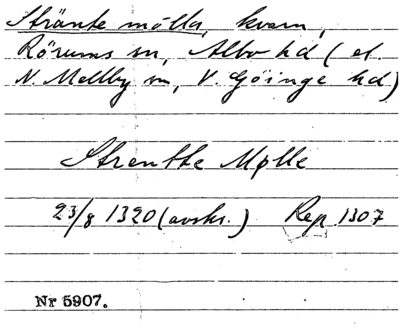 Stränte mölla, kvarn,
Rörums sn, Albo hd (el.
N. Mellby sn, V. Göinge hd)
Strentte Mølle
23/8 1320 (avskr.) Rep. 1307
Nr 5907.